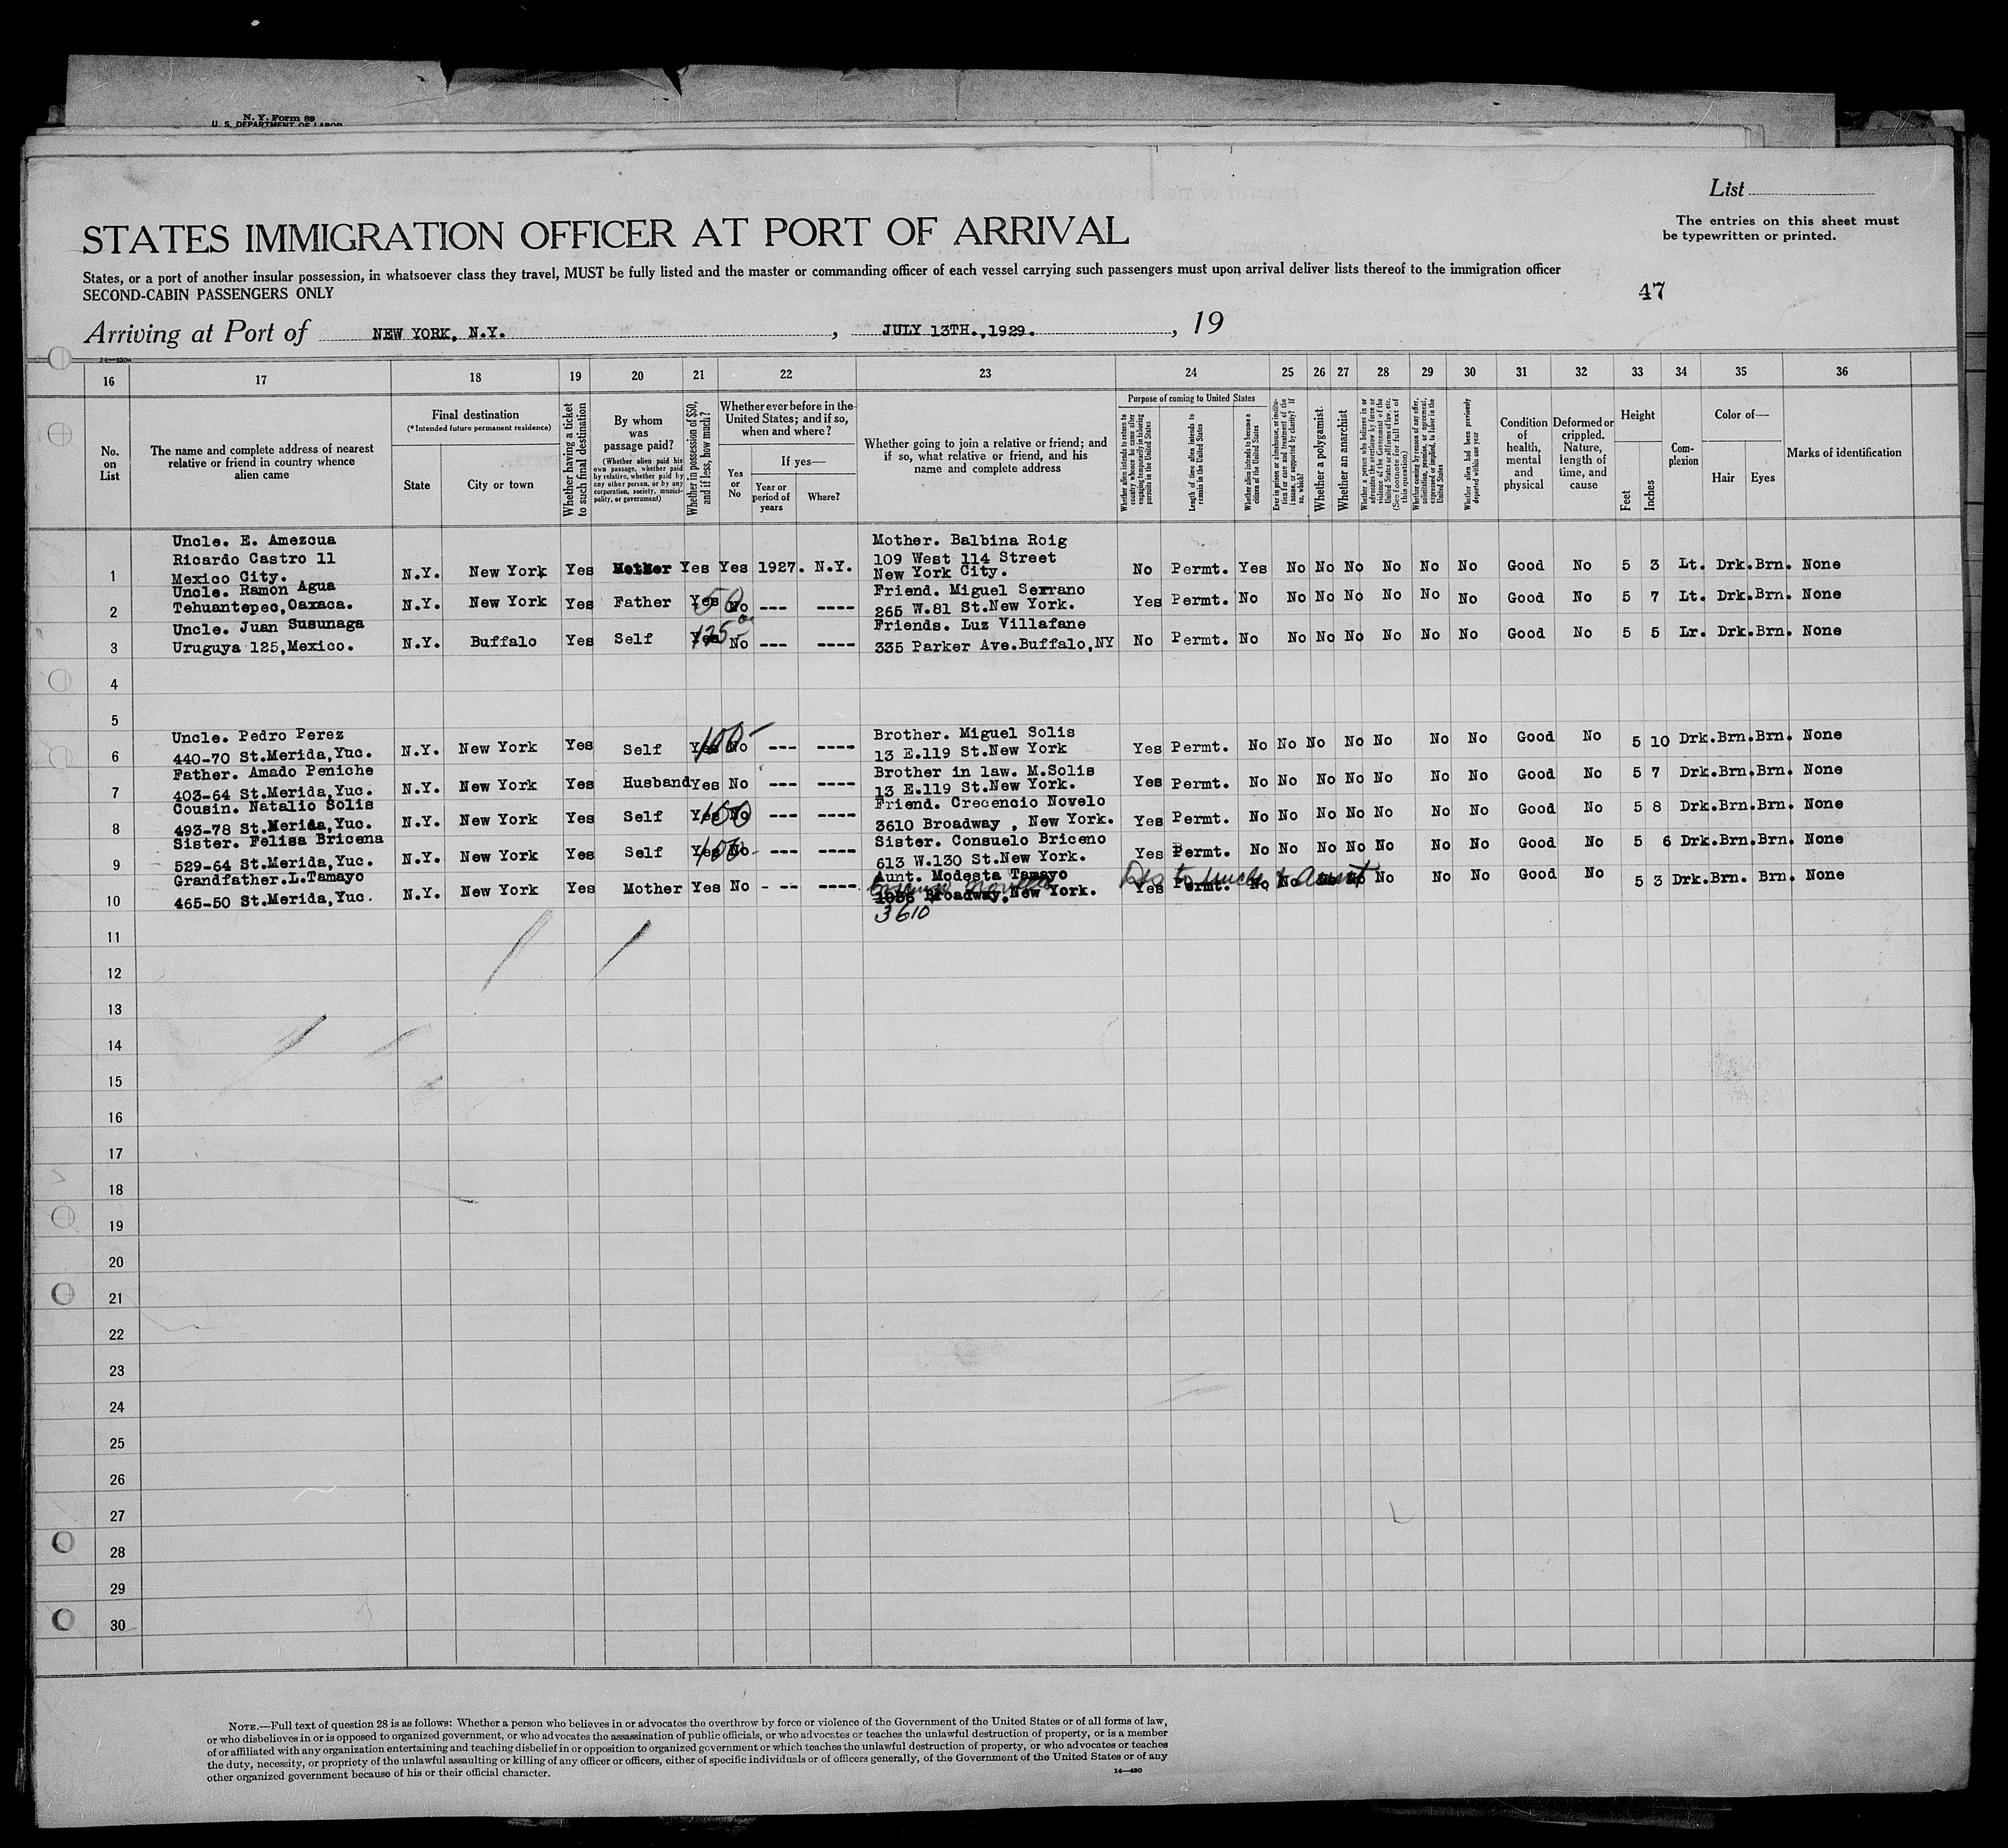 N. Y. Form 89
U. S. DEPARTMENT OF LABOR
List
STATES IMMIGRATION OFFICER AT PORT OF ARRIVAL
The entries on this sheet must
be typewritten or printed.
States, or a port of another insular possession, in whatsoever class they travel, MUST be fully listed and the master or commanding officer of each vessel carrying such passengers must upon arrival deliver lists thereof to the immigration officer
SECOND-CABIN PASSENGERS ONLY
47
Arriving at Port of NEW YORK, N.Y. , JULY 13TH.,1929. , 19
14—430
16 17 18 19 20 21 22 23 24 25 26 27 28 29 30 31 32 33 34 35 36
No.
on
List
The name and complete address of nearest
relative or friend in country whence
alien came
Final destination
(*Intended future permanent residence)
State
City or town
Whether having a ticket
to such final destination
By whom
was
passage paid?
(Whether alien paid his
own passage, whether paid
by relative, whether paid by
any other person, or by any
corporation, society, munici-
pality, or government)
Whether in possession of $50,
and if less, how much?
Whether ever before in the
United States; and if so,
when and where?
Yes
or
No
If yes—
Year or
period of
years
Where?
Whether going to join a relative or friend; and
if so, what relative or friend, and his
name and complete address
Purpose of coming to United States
Whether alien intends to return to
country whence he came after
engaging temporarily in laboring
pursuits in the United States
Length of time alien intends to
remain in the United States
Whether alien intends to become a
citizen of the United States
Ever in prison or almshouse, or institu-
tion for care and treatment of the
insane, or supported by charity? If
so, which?
Whether a polygamist.
Whether an anarchist
Whether a person who believes in or
advocates the overthrow by force or
violence of the Government of the
United States or all forms of law, etc.
(See footnote for full text of
this question)
Whether coming by reason of any offer,
solicitation, promise, or agreement,
expressed or implied, to labor in the
United States
Whether alien had been previously
deported within one year
Condition
of
health,
mental
and
physical
Deformed or
crippled.
Nature,
length of
time, and
cause
Height
Feet
Inches
Com-
plexion
Color of—
Hair
Eyes
Marks of identification
Uncle. E. Amezcua
Ricardo Castro 11
Mexico City.
Mother. Balbina Roig
109 West 114 Street
New York City.
1 N.Y. New York Yes Mother Yes Yes 1927. N.Y. No Permt. Yes No No No No No No Good No 5 3 Lt. Drk. Brn. None
Uncle. Ramon Agua
Tehuantepec,Oaxaca.
Friend. Miguel Serrano
265 W.81 St.New York.
2 N.Y. New York Yes Father Yes 50 No --- ---- Yes Permt. No No No No No No No Good No 5 7 Lt. Drk. Brn. None
Uncle. Juan Susunaga
Uruguya 125,Mexico.
Friends. Luz Villafane
335 Parker Ave.Buffalo,NY
3 N.Y. Buffalo Yes Self Yes 125 No --- ---- No Permt. No No No No No No No Good No 5 5 Lr. Drk. Brn. None
4
5
Uncle. Pedro Perez
440-70 St.Merida,Yuc.
Brother. Miguel Solis
13 E.119 St.New York
6 N.Y. New York Yes Self Yes 100 No --- ---- Yes Permt. No No No No No No No Good No 5 10 Drk. Brn. Brn. None
Father. Amado Peniche
403-64 St.Merida,Yuc.
Brother in law. M.Solis
13 E.119 St.New York.
7 N.Y. New York Yes Husband Yes No --- ---- Yes Permt. No No No No No No No Good No 5 7 Drk. Brn. Brn. None
Cousin. Natalio Solis
493-78 St.Merida,Yuc.
Friend. Crecencio Novelo
3610 Broadway , New York.
8 N.Y. New York Yes Self Yes 100 No --- ---- Yes Permt. No No No No No No No Good No 5 8 Drk. Brn. Brn. None
Sister. Felisa Bricena
529-64 St.Merida,Yuc.
Sister. Consuelo Briceno
613 W.130 St.New York.
9 N.Y. New York Yes Self Yes 100 No --- ---- Yes Permt. No No No No No No No Good No 5 6 Drk. Brn. Brn. None
Grandfather.L.Tamayo
465-50 St.Merida,Yuc.
Aunt. Modesta Tamayo
Broadway,New York.
3610
Dis to uncle & aunt
10 N.Y. New York Yes Mother Yes No - -- ----. Yes Permt. No No No No No No No Good No 5 3 Drk. Brn. Brn. None
11
12
13
14
15
16
17
18
19
20
21
22
23
24
25
26
27
28
29
30
NOTE.—Full text of question 28 is as follows: Whether a person who believes in or advocates the overthrow by force or violence of the Government of the United States or of all forms of law,
or who disbelieves in or is opposed to organized government, or who advocates the assassination of public officials, or who advocates or teaches the unlawful destruction of property, or is a member
of or affiliated with any organization entertaining and teaching disbelief in or opposition to organized government or which teaches the unlawful destruction of property, or who advocates or teaches
the duty, necessity, or propriety of the unlawful assaulting or killing of any officer or officers, either of specific individuals or of officers generally, of the Government of the United States or of any
other organized government because of his or their official character.
14—430